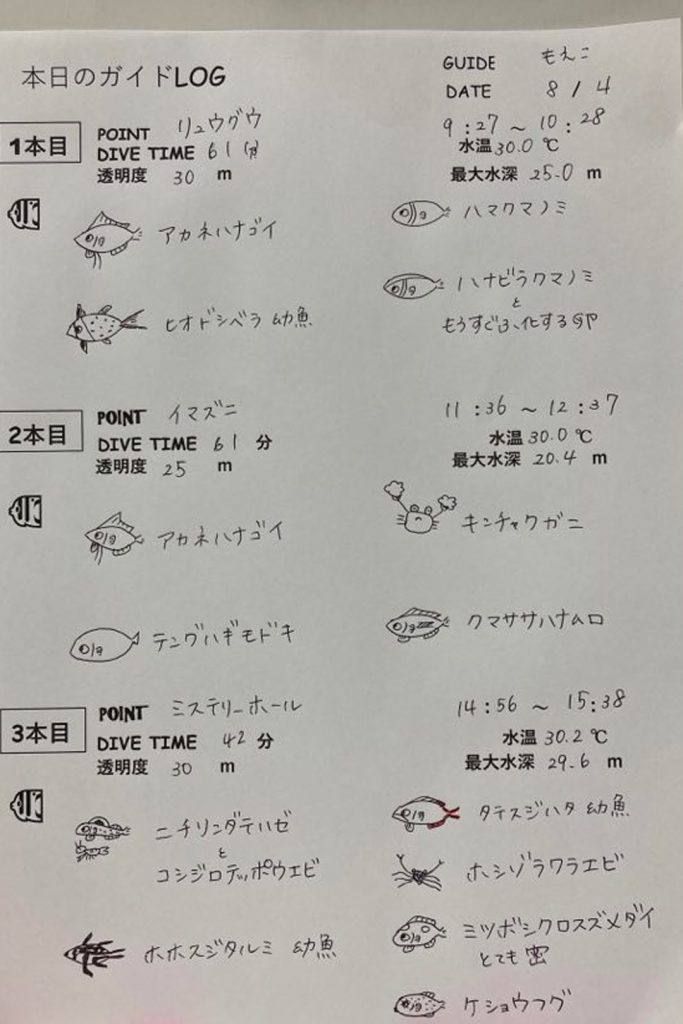 本日のガイドLOG
GUIDE もえこ
DATE 8 / 4
1本目
POINT リュウグウ
DIVE TIME 61 分
透明度 30 m
9:27 ~ 10:28
水温 30.0 ℃
最大水深 25.0 m
アカネハナゴイ
ハマクマノミ
ヒオドシベラ 幼魚
ハナビラクマノミ
と
もうすぐふ化する卵
2本目
POINT イマズニ
DIVE TIME 61 分
透明度 25 m
11:36 ~ 12:37
水温 30.0 ℃
最大水深 20.4 m
アカネハナゴイ
キンチャクガニ
テングハギモドキ
クマササハナムロ
3本目
POINT ミステリーホール
DIVE TIME 42 分
透明度 30 m
14:56 ~ 15:38
水温 30.2 ℃
最大水深 29.6 m
ニチリンダテハゼ
と
コシジロテッポウエビ
タテスジハタ 幼魚
ホシゾラワラエビ
ホホスジタルミ 幼魚
ミツボシクロスズメダイ
とても密
ケショウフグ